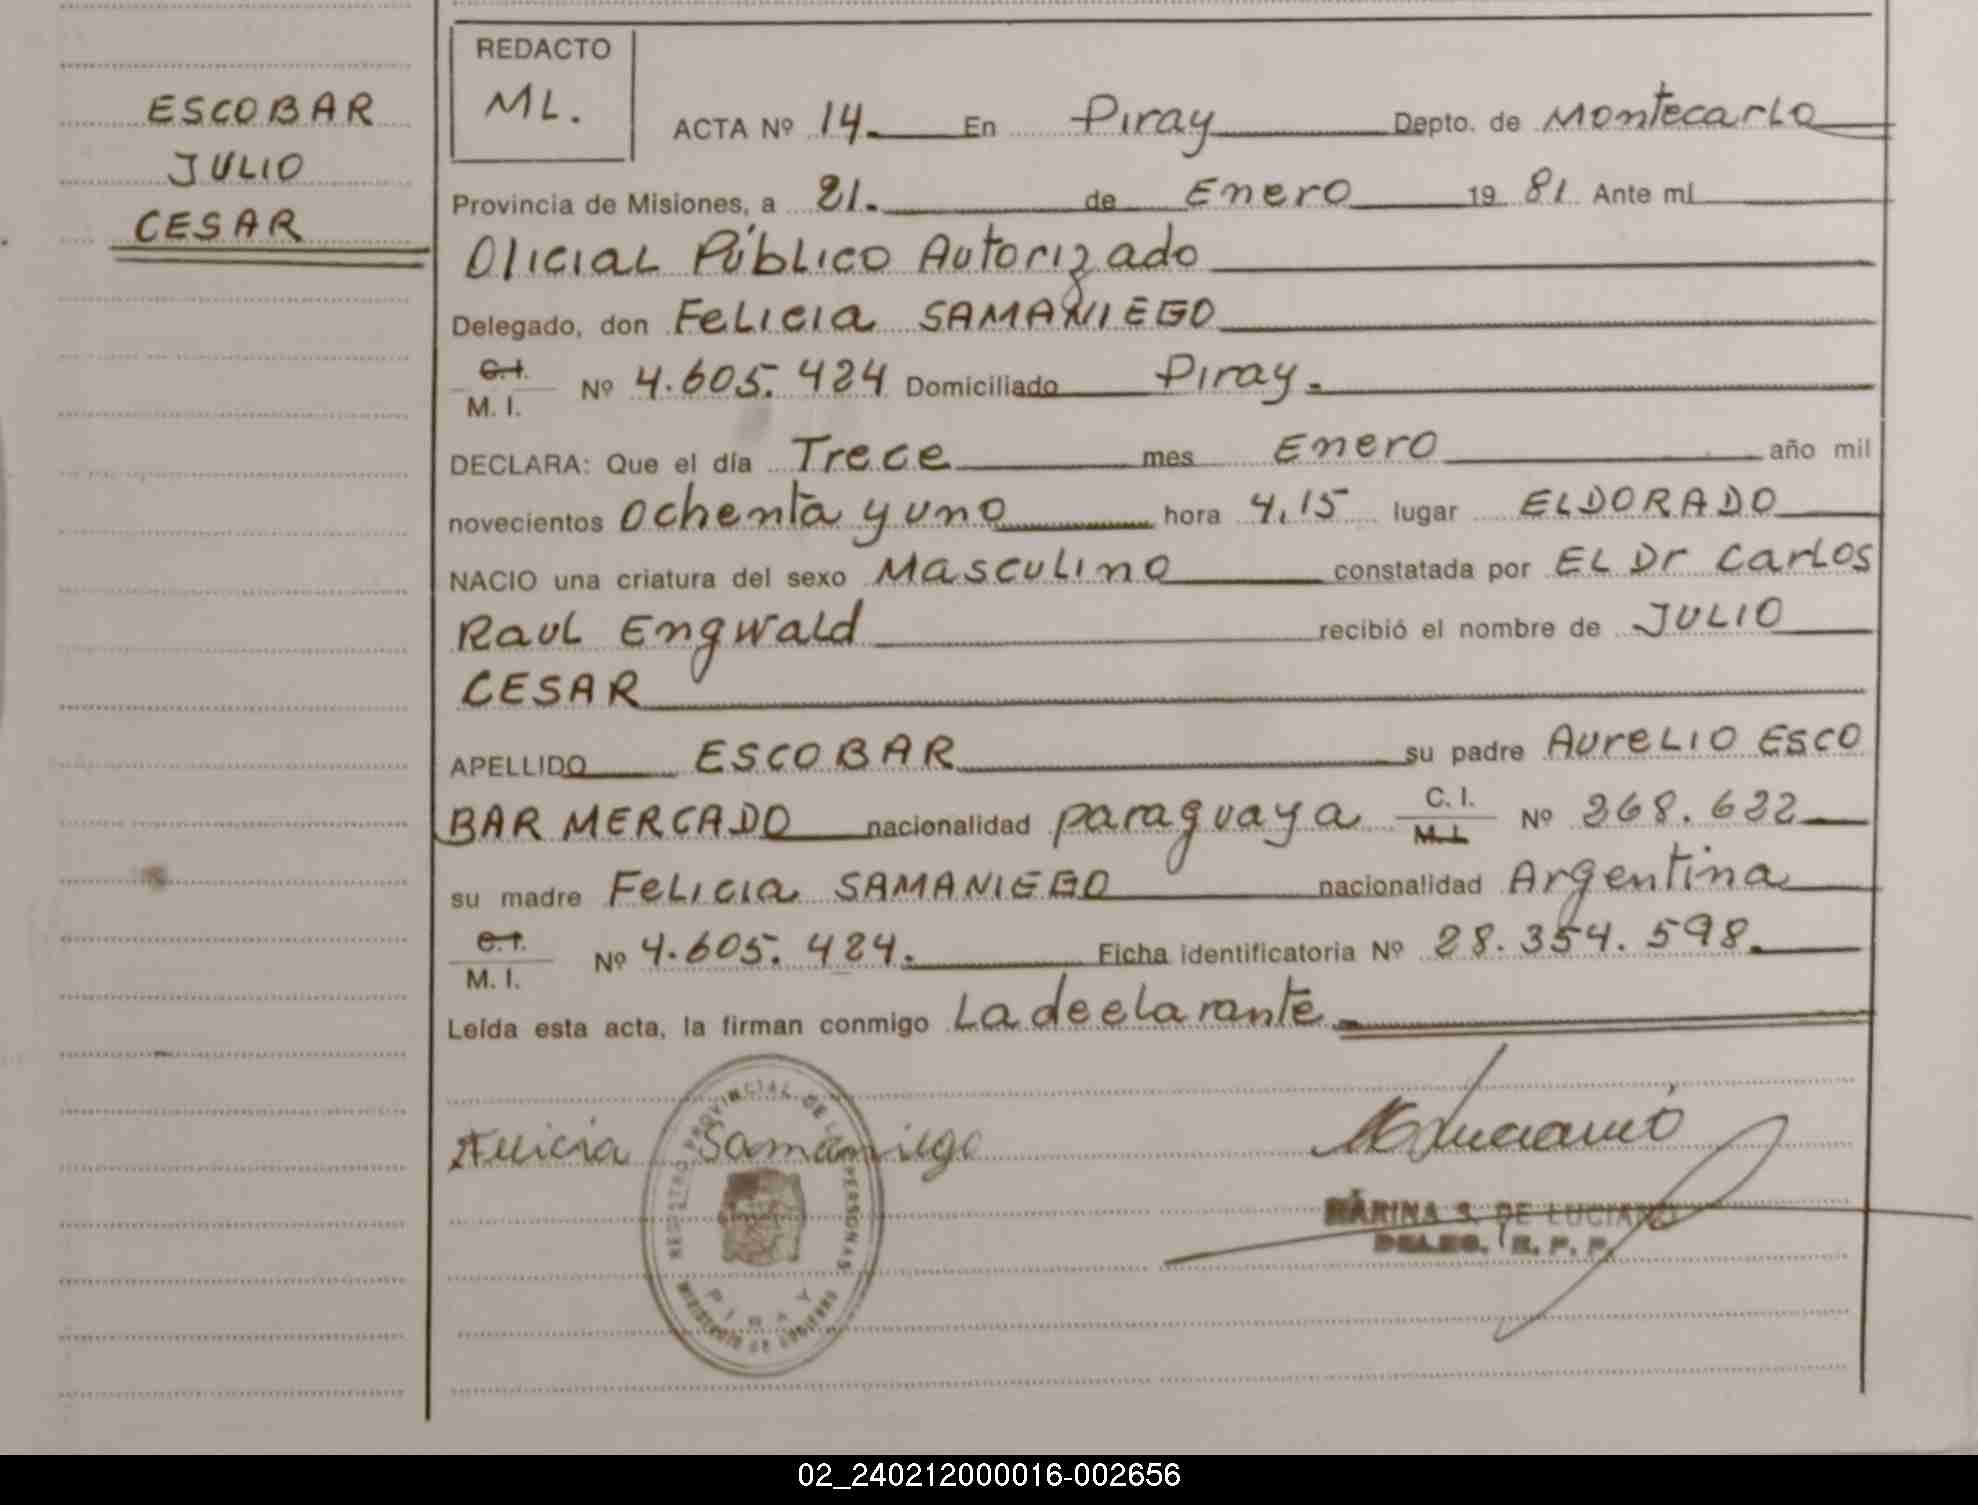 ESCOBAR
JULIO
CESAR
REDACTO
ML.
ACTA Nº 14. En Piray Depto. de Montecarlo
Provincia de Misiones, a 21. de Enero 19 81 Ante mí
Oficial Público Autorizado
Delegado, don Felicia SAMANIEGO
C.I.
M. I. Nº 4.605.424 Domiciliado Piray.
DECLARA: Que el día Trece mes Enero año mil
novecientos Ochenta y uno hora 4,15 lugar ELDORADO
NACIO una criatura del sexo Masculino constatada por EL Dr Carlos
Raul Engwald recibió el nombre de JULIO
CESAR
APELLIDO ESCOBAR su padre Aurelio ESCO
BAR MERCADO nacionalidad paraguaya C. I. Nº 268.622
M.I.
su madre Felicia SAMANIEGO nacionalidad Argentina
C.I.
M. I. Nº 4.605.424. Ficha identificatoria Nº 28.354.598.
Leída esta acta, la firman conmigo La declarante
Felicia Samaniego
REGISTRO PROVINCIAL DE LAS PERSONAS
PIRAY
MINISTERIO DE GOBIERNO
MARINA S. DE LUCIANO
DELEG. R. P. P.
02_240212000016-002656